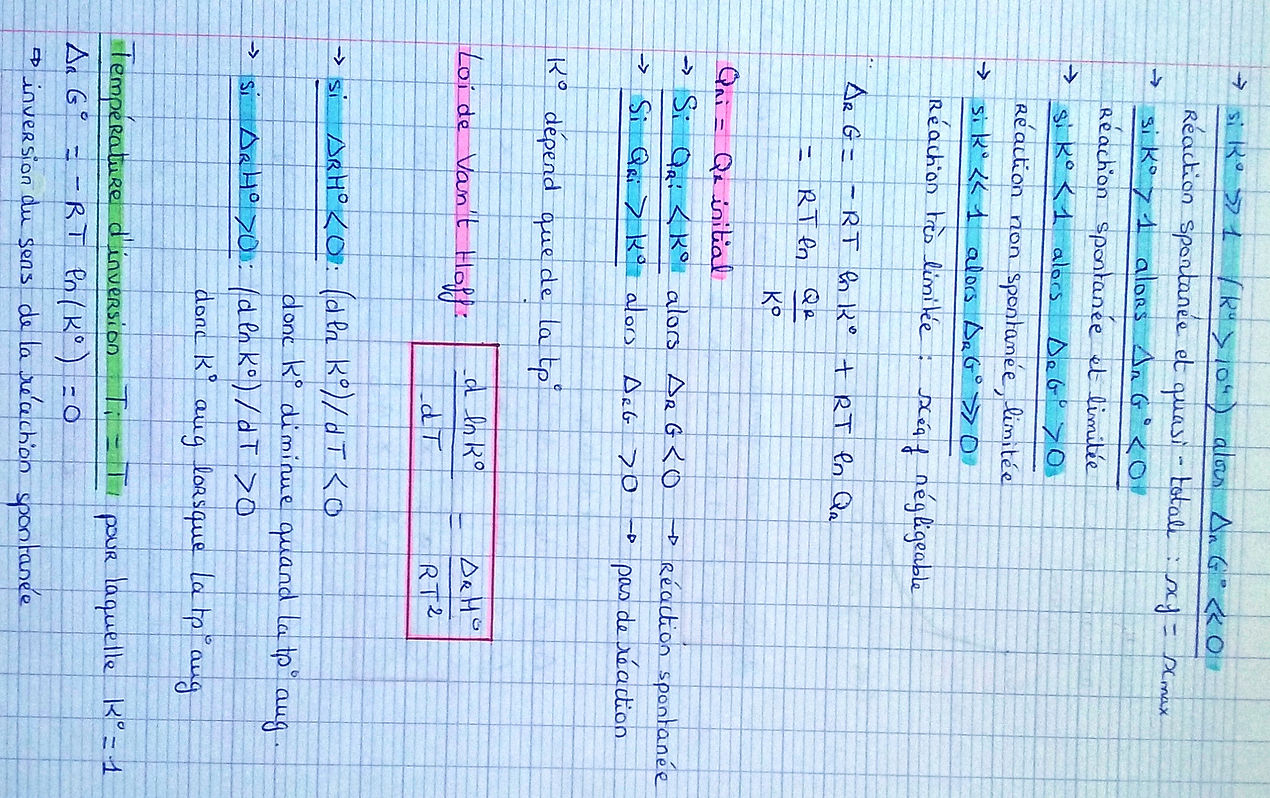 → si K° >> 1 (K° > 10⁴) alors ΔRG° << 0
Réaction spontanée et quasi-totale : xf = xmax
→ si K° > 1 alors ΔRG° < 0
Réaction spontanée et limitée
→ si K° < 1 alors ΔRG° > 0
Réaction non spontanée, limitée
→ si K° << 1 alors ΔRG° >> 0
Réaction très limitée : xéqf négligeable
ΔRG = - RT ln K° + RT ln QR
= RT ln QR/K°
QRi = QR initial
→ Si QRi < K° alors ΔRG < 0 → Réaction spontanée
→ Si QRi > K° alors ΔRG > 0 → pas de réaction
K° dépend que de la tp°
Loi de Van't Hoff : d ln K°/dT = ΔRH°/RT²
→ si ΔRH° < 0 : (d ln K°)/dT < 0
donc K° diminue quand la tp° aug.
→ si ΔRH° > 0 : (d ln K°)/dT > 0
donc K° aug lorsque la tp° aug
Température d'inversion : Ti = T pour laquelle K° = 1
ΔRG° = - RT ln(K°) = 0
⇒ inversion du sens de la réaction spontanée